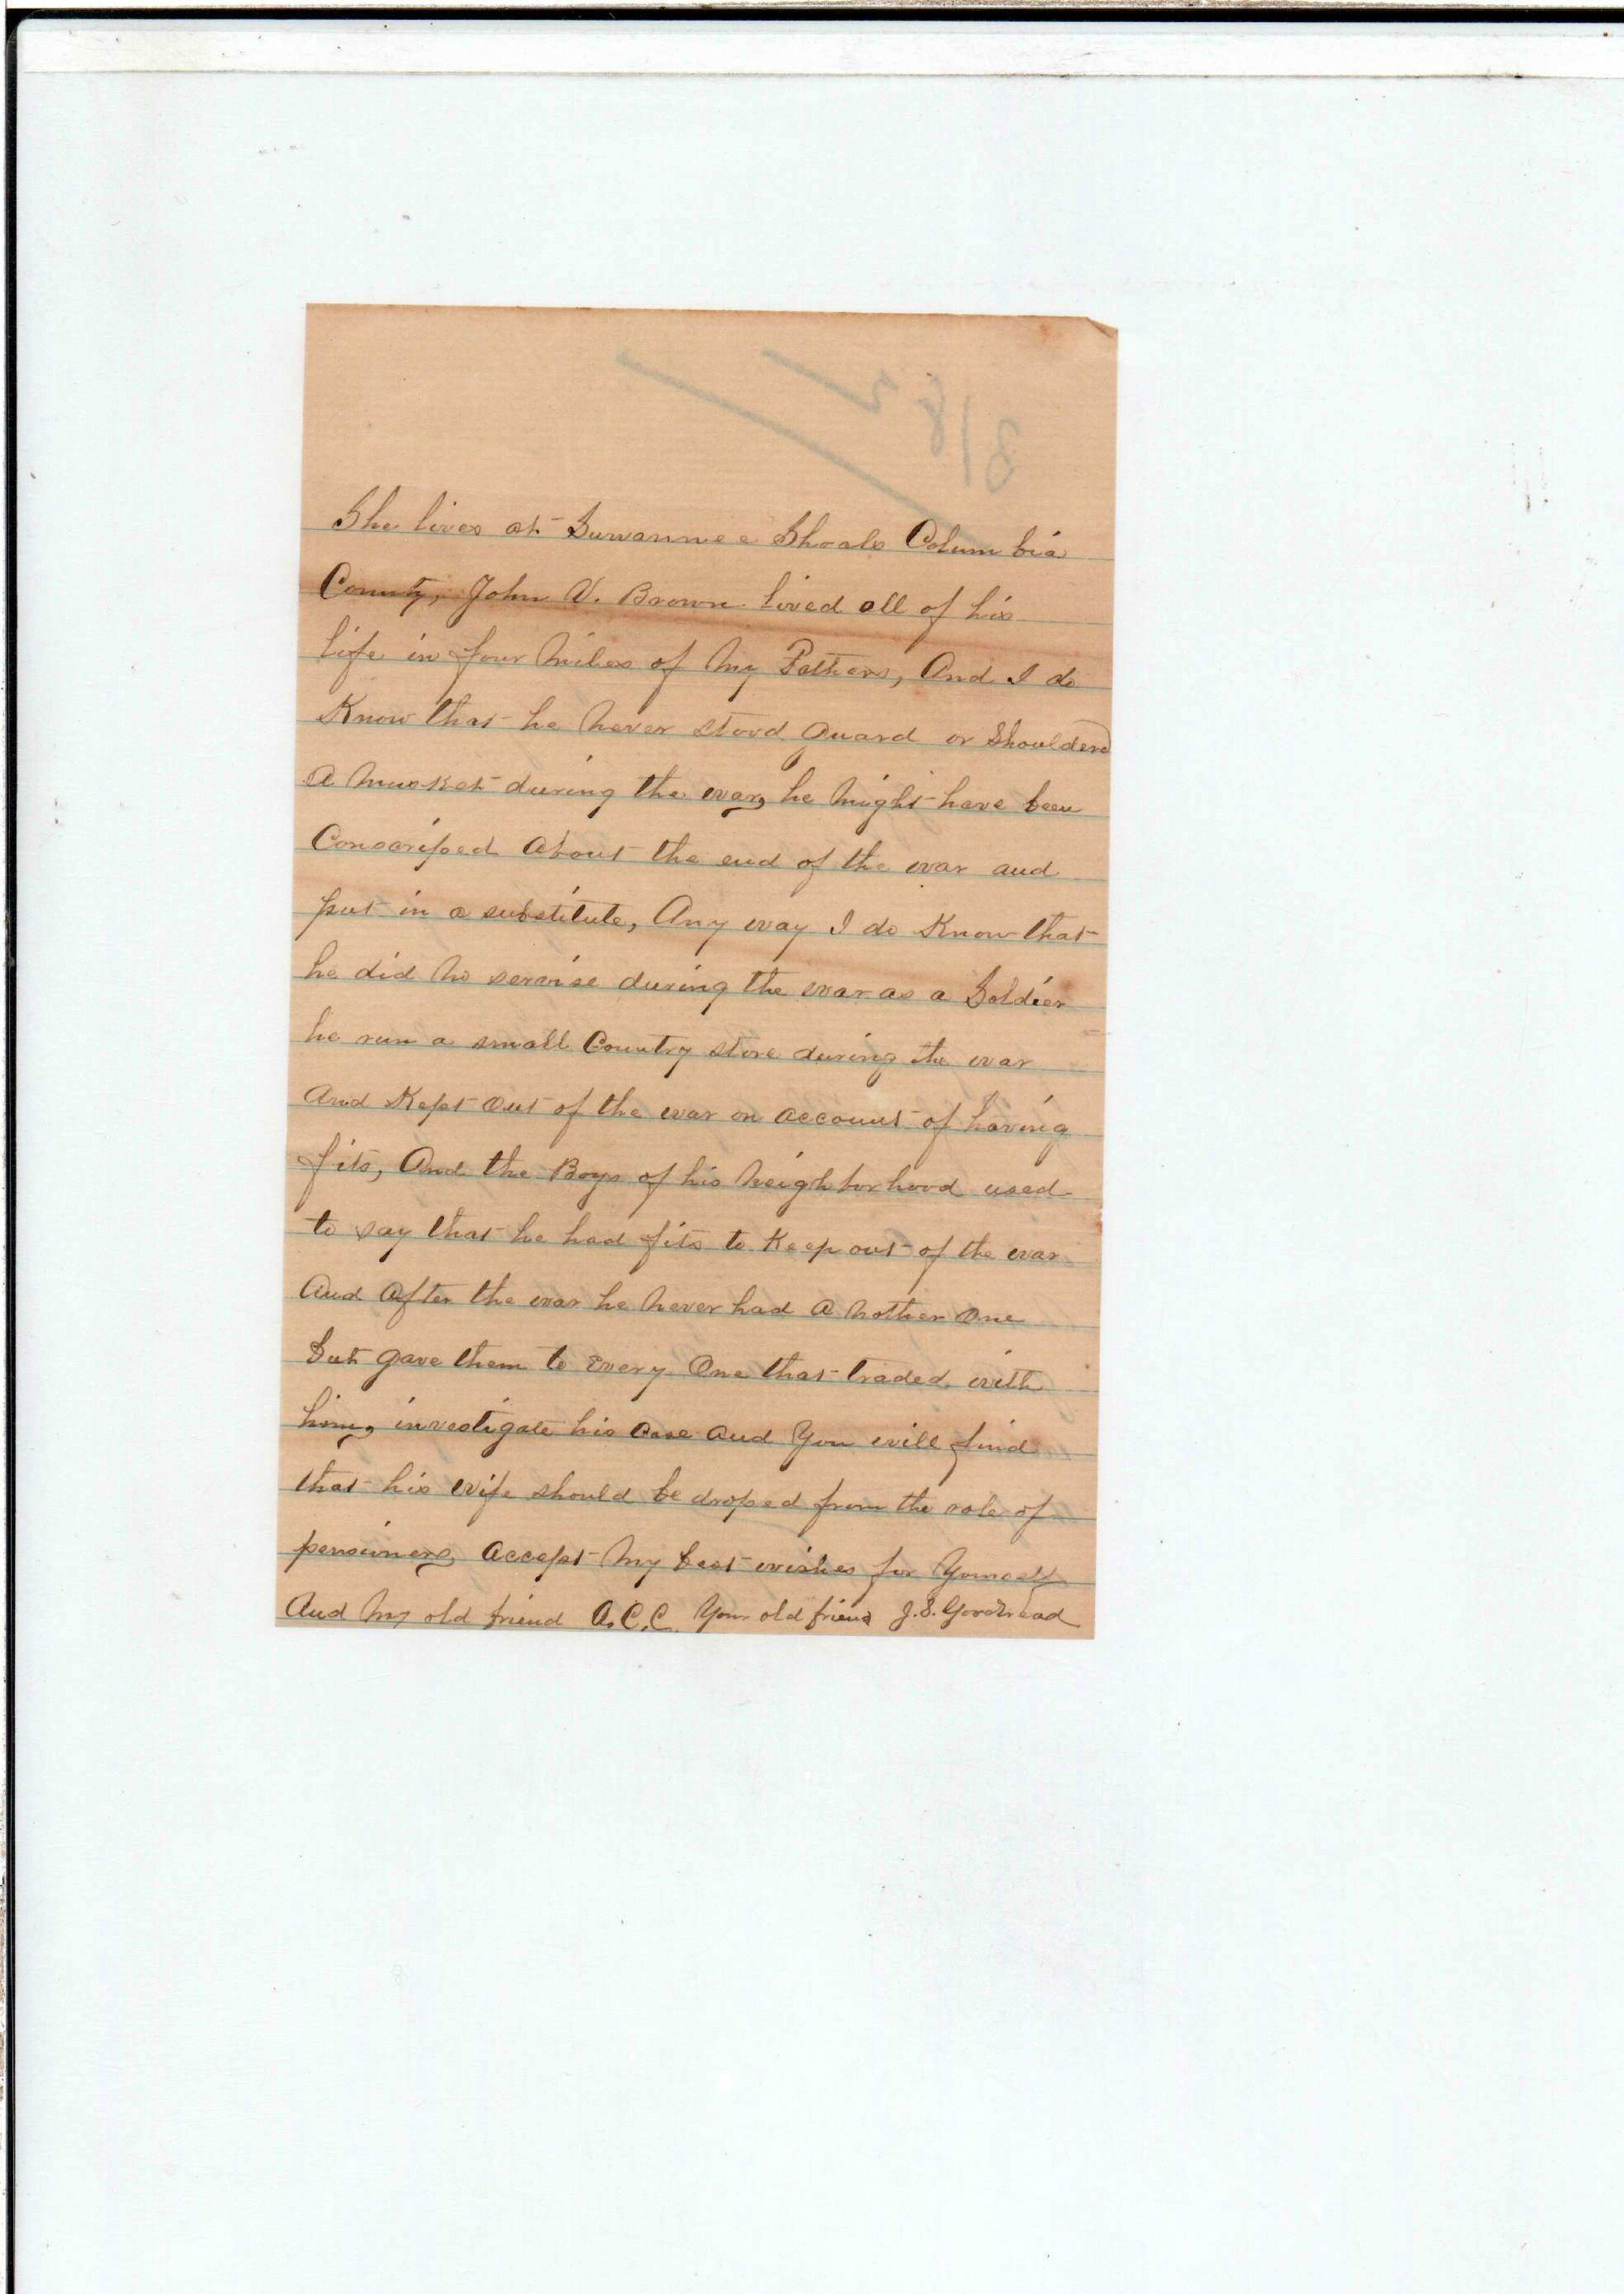 She lives at Suwannee Shoals Columbia
County, John V. Brown lived all of his
life in four Miles of My Fathers, And I do
Know that he Never stood Guard or Shouldered
A Musket during the war, he Might have been
Conscriped About the end of the war and
put in a substitute, Any way I do Know that
he did No servise during the war as a Soldier
he run a small Country store during the war
And Kept Out of the war on account of having
fits, And the Boys of his Neighborhood used
to say that he had fits to Keep out of the war
And After the war he Never had A Nother One
but gave them to Every One that traded with
him, investigate his Case And You will find
that his wife should be droped from the role of
pensiners, Accept My best wishes for Yourself
And My old friend A.C.C. Your old friend J.S. Goodbread